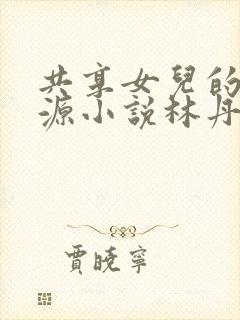 共享女兒的
源小說林丹
賈曉寧